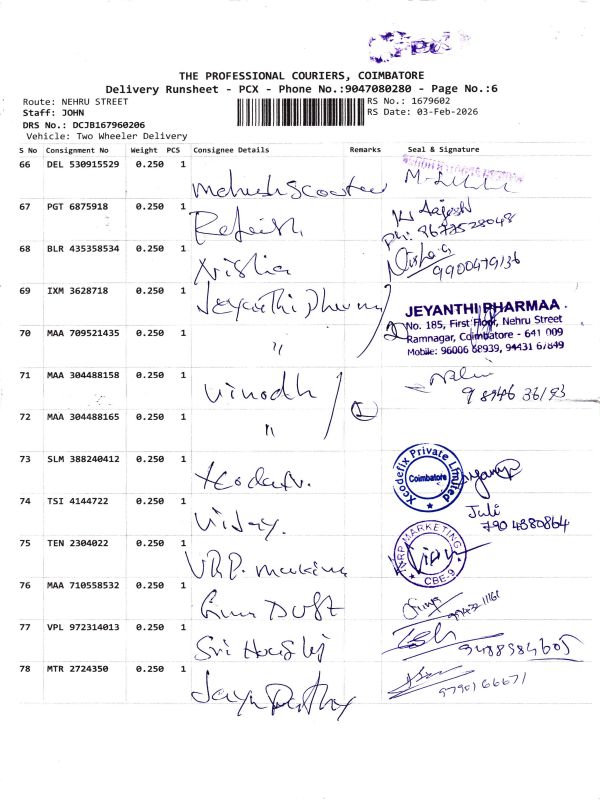 THE PROFESSIONAL COURIERS, COIMBATORE
Delivery Runsheet - PCX - Phone No.:9047080280 - Page No.:6
Route: NEHRU STREET
RS No.: 1679602
Staff: JOHN
RS Date: 03-Feb-2026
DRS No.: DCJB167960206
Vehicle: Two Wheeler Delivery
S No Consignment No Weight PCS Consignee Details Remarks Seal & Signature
66 DEL 530915529 0.250 1
67 PGT 6875918 0.250 1
Rajesh
68 BLR 435358534 0.250 1
Nisha
9900479136
69 IXM 3628718 0.250 1 Jeyanthi
JEYANTHI PHARMAA
No. 185, First Floor, Nehru Street
70 MAA 709521435 0.250 1 " 2
Ramnagar, Coimbatore - 641 009
Mobile: 96006 68939, 94431 67849
71 MAA 304488158 0.250 1 Vinodh
72 MAA 304488165 0.250 1 "
73 SLM 388240412 0.250 1
Xcodefix Private Limited
Coimbatore
74 TSI 4144722 0.250 1 Vijay.
Juli
790 4880864
75 TEN 2304022 0.250 1 VRP.
VRP MARKETING
CBE-9
76 MAA 710558532 0.250 1
77 VPL 972314013 0.250 1 Sri
78 MTR 2724350 0.250 1
9790166671